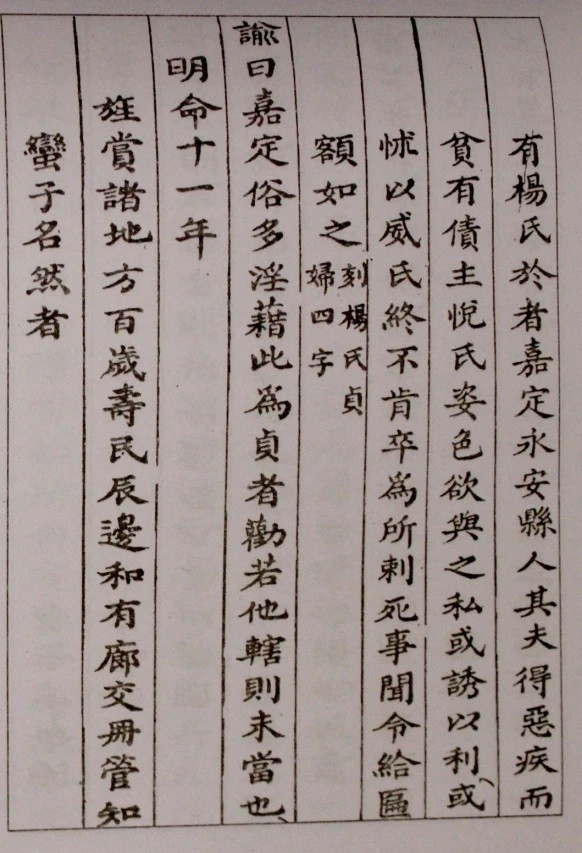 有楊氏於者嘉定永安縣人其夫得惡疾而
貧有債主悅氏姿色欲與之私或誘以利、或
怵以威氏終不肯卒爲所刺死事聞令給匾
額如之刻楊氏貞
婦四字
諭曰嘉定俗多淫藉此爲貞者勸若他轄則未當也、
明命十一年
旌賞諸地方百歲壽民辰邊和有廊交冊管知
蠻子名然者